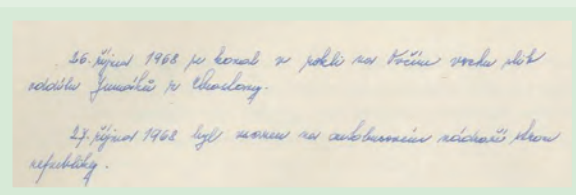 26. října 1968 se konal v rokli na Vočím vrchu slib
oddílu Junáků ze Chodovy.
27. října 1968 byl na autobusovém nádraží strom
republiky.